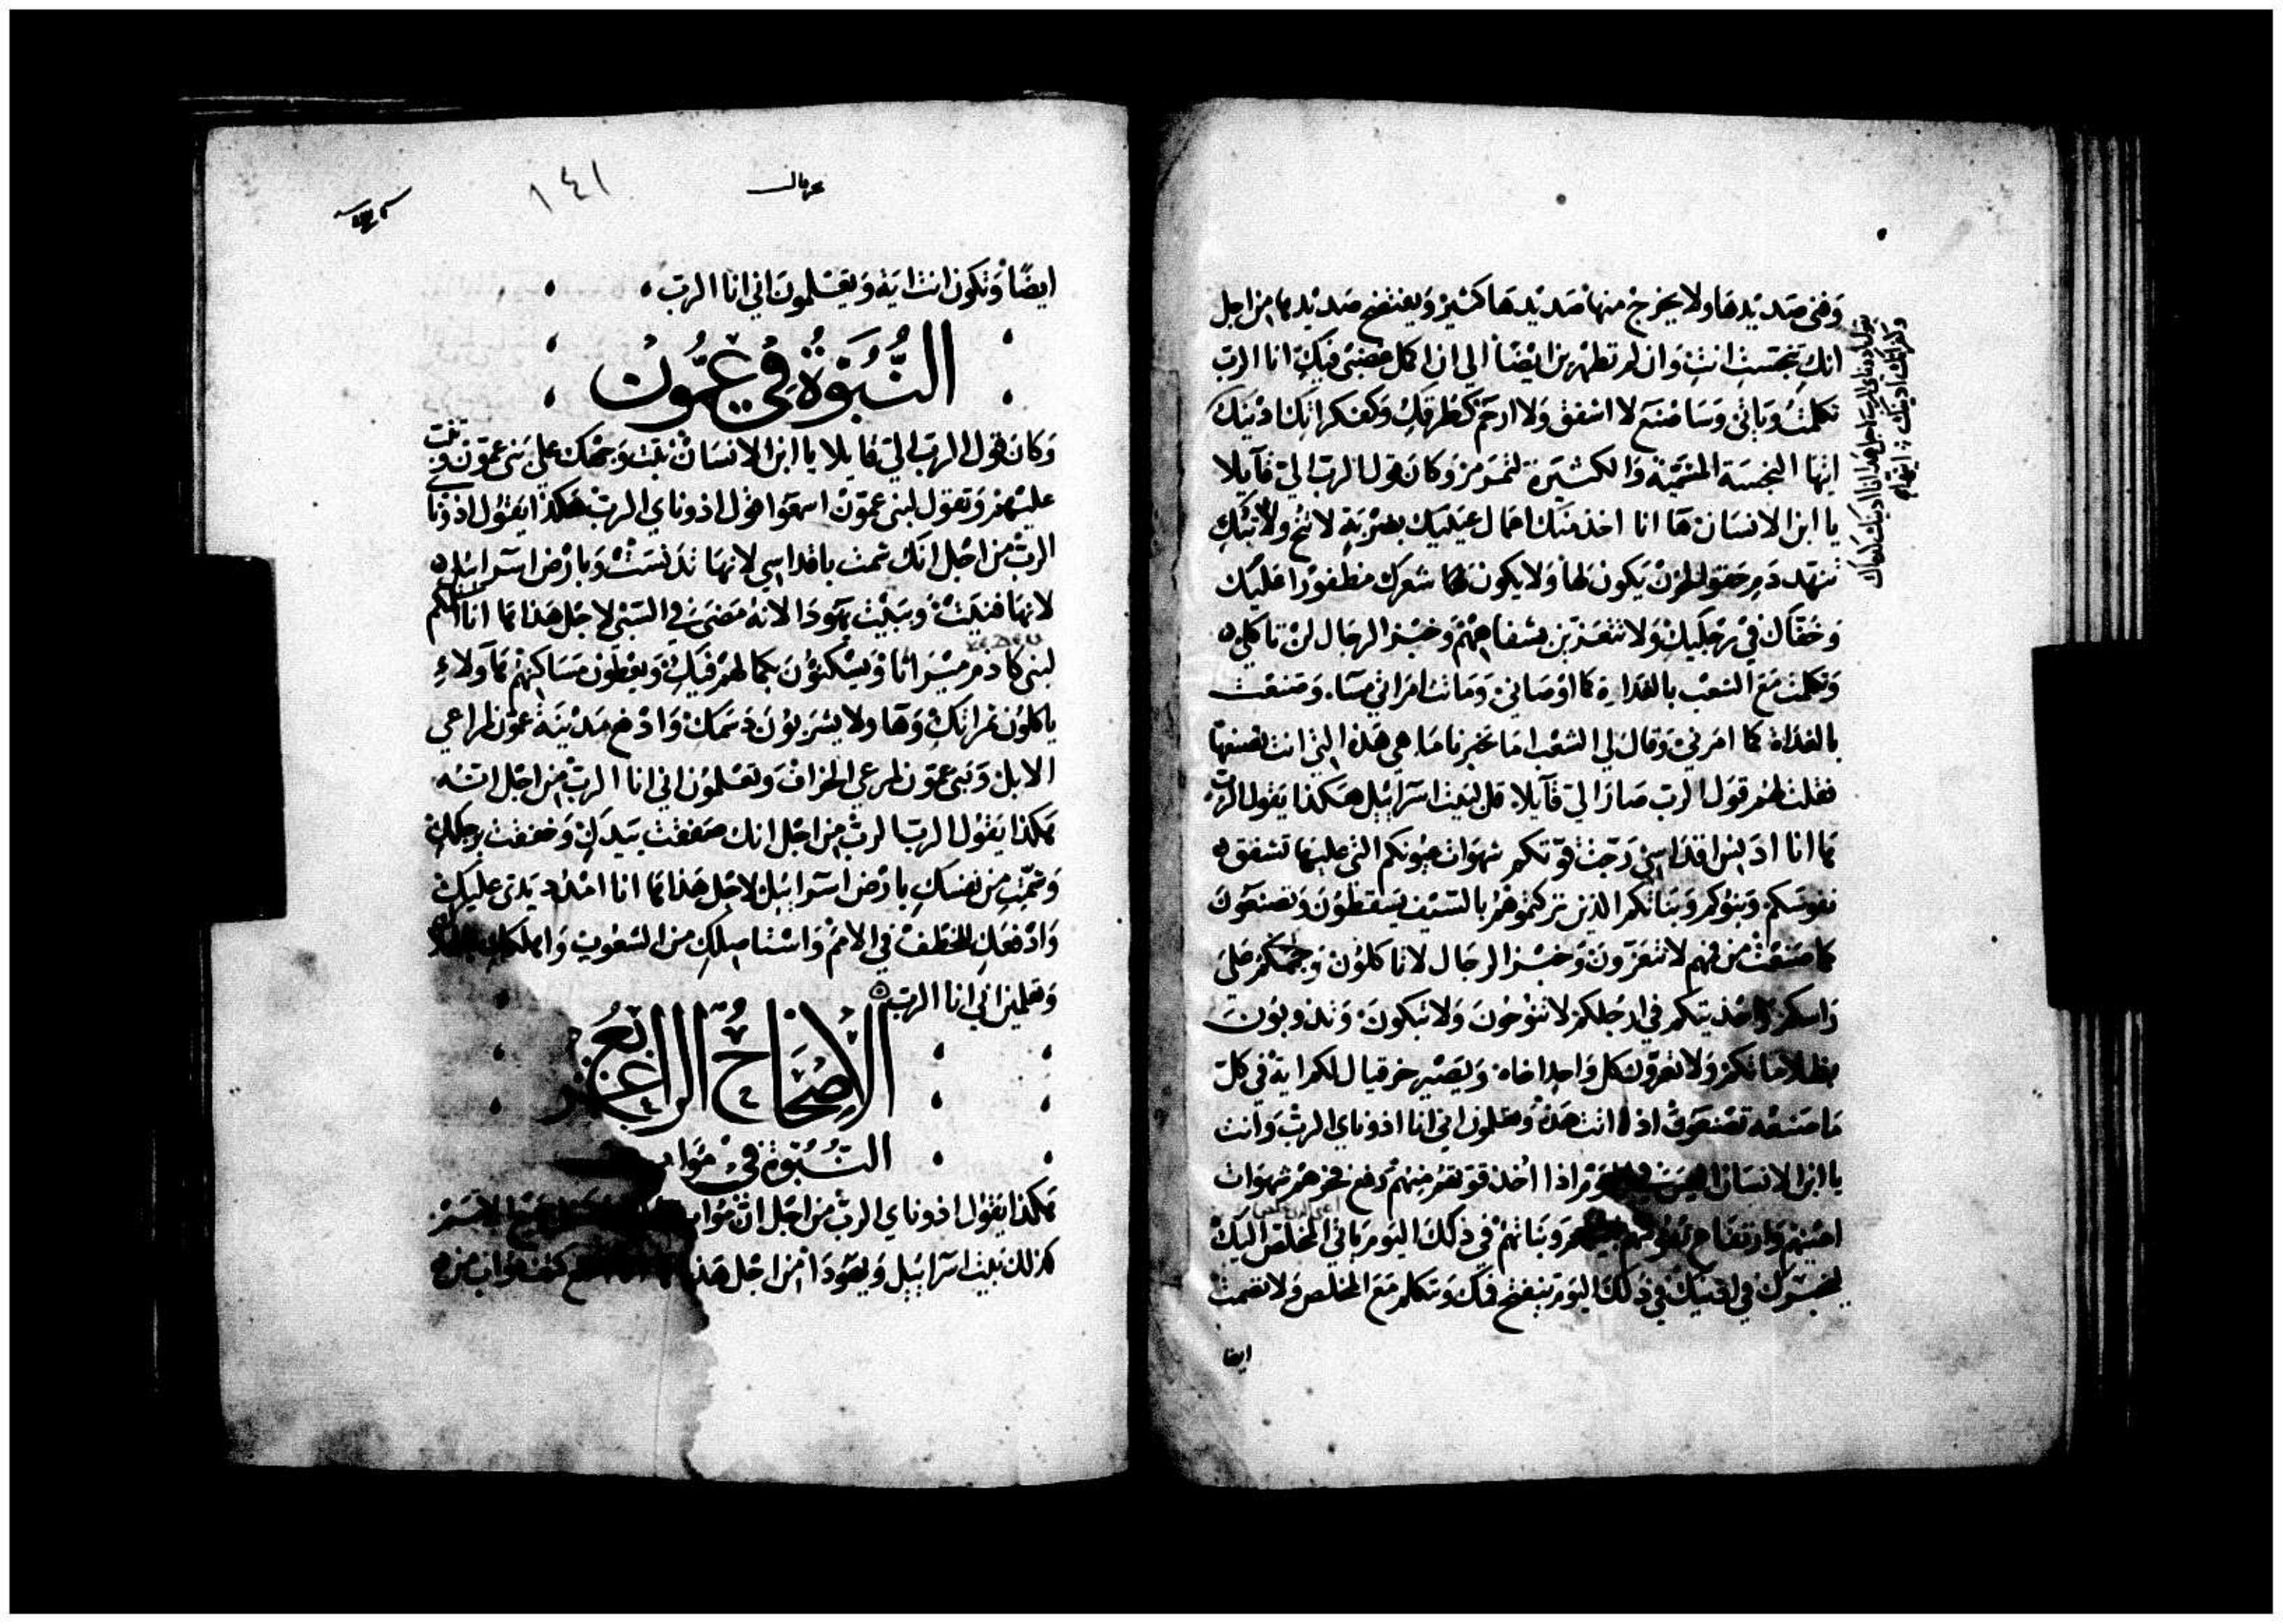 وفنى صديدها ولا يخرج منها صديدها كثير ويفتضح صديدها من اجل
انكِ تنجستِ انتِ وان لم تطهرين ايضًا الى ان اكمل غضبى فيكِ انا الرب
تكلمتُ وياتى وساصنع لا اشفق ولا ارحم كطرقكِ وكفكراتكِ ادينك
ايتها النجسة المسمية والكثيرة لتمرمر وكان قول الرب الىّ قآيلا
يا ابن الانسان ها انا اخذ منك اعمال عينيك بضربةٍ لا تنح ولا تبكِ
تنهد دم حقو الحزن يكون لها ولا يكون شعرك مظفورًا عليك
وخفاك في رجليك ولا تتعزين بشفاههم وخبز الرجال لن تاكل
وتكلمت مع الشعب بالغداة كما اوصانى وماتت امراتي مسآء وصنعت
بالغداة كما امرنى وقال لي الشعب اما تخبرنا ما هى هذه التي انت تصنعها
فقلت لهم قول الرب صار الىّ قآيلا قل لبيت اسرآئيل هكذا يقول الرب
ها انا ادنس اقداسى رجت قوتكم شهوات عيونكم التى عليها تشفق
نفوسكم وبنوكم وبناتكم الذين تركتموهم بالسيف يسقطون وتصنعون
كما صنعت من فمهم لا تتعزون وخبز الرجال لا تاكلون وجممكم على
راسكم واحذيتكم في ارجلكم لا تنوحون ولا تبكون وتذوبون
بظلاماتكم ولا تعزون كل واحد اخاه ويصير حزقيال لكم اية في كل
ما صنعه تصنعون اذا اتت هذه وتعلمون اني انا اذوناي الرب وانت
يا ابن الانسان اليس في اليوم اذا اخذ قوتهم منهم رفع فخرهم شهوات
اعينهم وارتفاع نفوسهم بنيهم وبناتهم في ذلك اليوم ياتي المخلص اليك
ليخبرك في اذنيك في ذلك اليوم ينفتح فمك وتتكلم مع المخلص ولا تصمت
ايضا
حزقيال
١٤١
ايضًا وتكون انت اية ويعلمون اني انا الرب
النُبُوَة في عمُّون
وكان قول الرب الي قايلا يا ابن الانسان ثبت وجهك على بني عمون وتنبَ
عليهم وتقول لبني عمّون اسمعوا قول اذوناي الرب هكذا يقول اذوناي
الرب من اجل انك شمت باقداسي لانها تدنست وبارض اسرائيل
لانها فنيت وببيت يهودا لانه مضى في السبى لاجل هذا ها انا اسلمكم
لبنى كادم ميراثا ويسكنون بجمالهم فيكِ ويعطون مساكنهم هآولاءِ
ياكلون ثمراتكِ وهاولا يشربون دسمك وادفع مدينة عمون لمراعي
الابل وبني عمون لمرعى الخراف وتعلمون اني انا الرب من اجل انه
هكذا يقول الرب الرب من اجل انك صفقت بيدكِ وخففت برجلكِ
وشمتِ من نفسكِ بارض اسرائيل لاجل هذا ها انا امدد يدى عليكِ
وادفعكِ للخطف في الامم واستاصلكِ من الشعوب واهلككِ
وتعلمين اني انا الرب
الاصحَاح الرابع
النُبُوة في مواب
هكذا يقول اذوناي الرب من اجل ان مواب
كذلك بيت اسرآئيل ويهودا من اجل هذا كتف مواب من